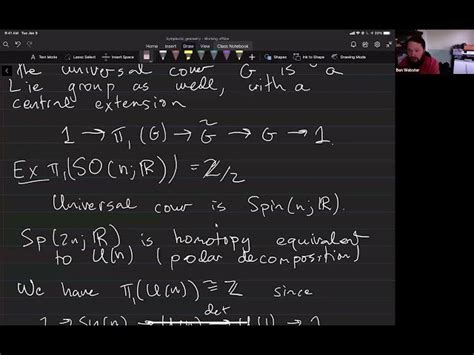 9:41 AM Tue Jan 9
Symplectic geometry - Working offline
Home Insert Draw View Class Notebook
Text Mode Lasso Select Insert Space
Shapes Ink to Shape Drawing Mode
Ben Webster
The universal cover G̃ is a
Lie group as well, with a
central extension
1 → π₁(G) → G̃ → G → 1.
Ex π₁(SO(n;ℝ)) = ℤ/2
Universal cover is Spin(n;ℝ).
Sp(2n;ℝ) is homotopy equivalent
to U(n) (polar decomposition)
We have π₁(U(n)) ≅ ℤ since
det
1 → SU(n) → U(n) → U(1) → 1